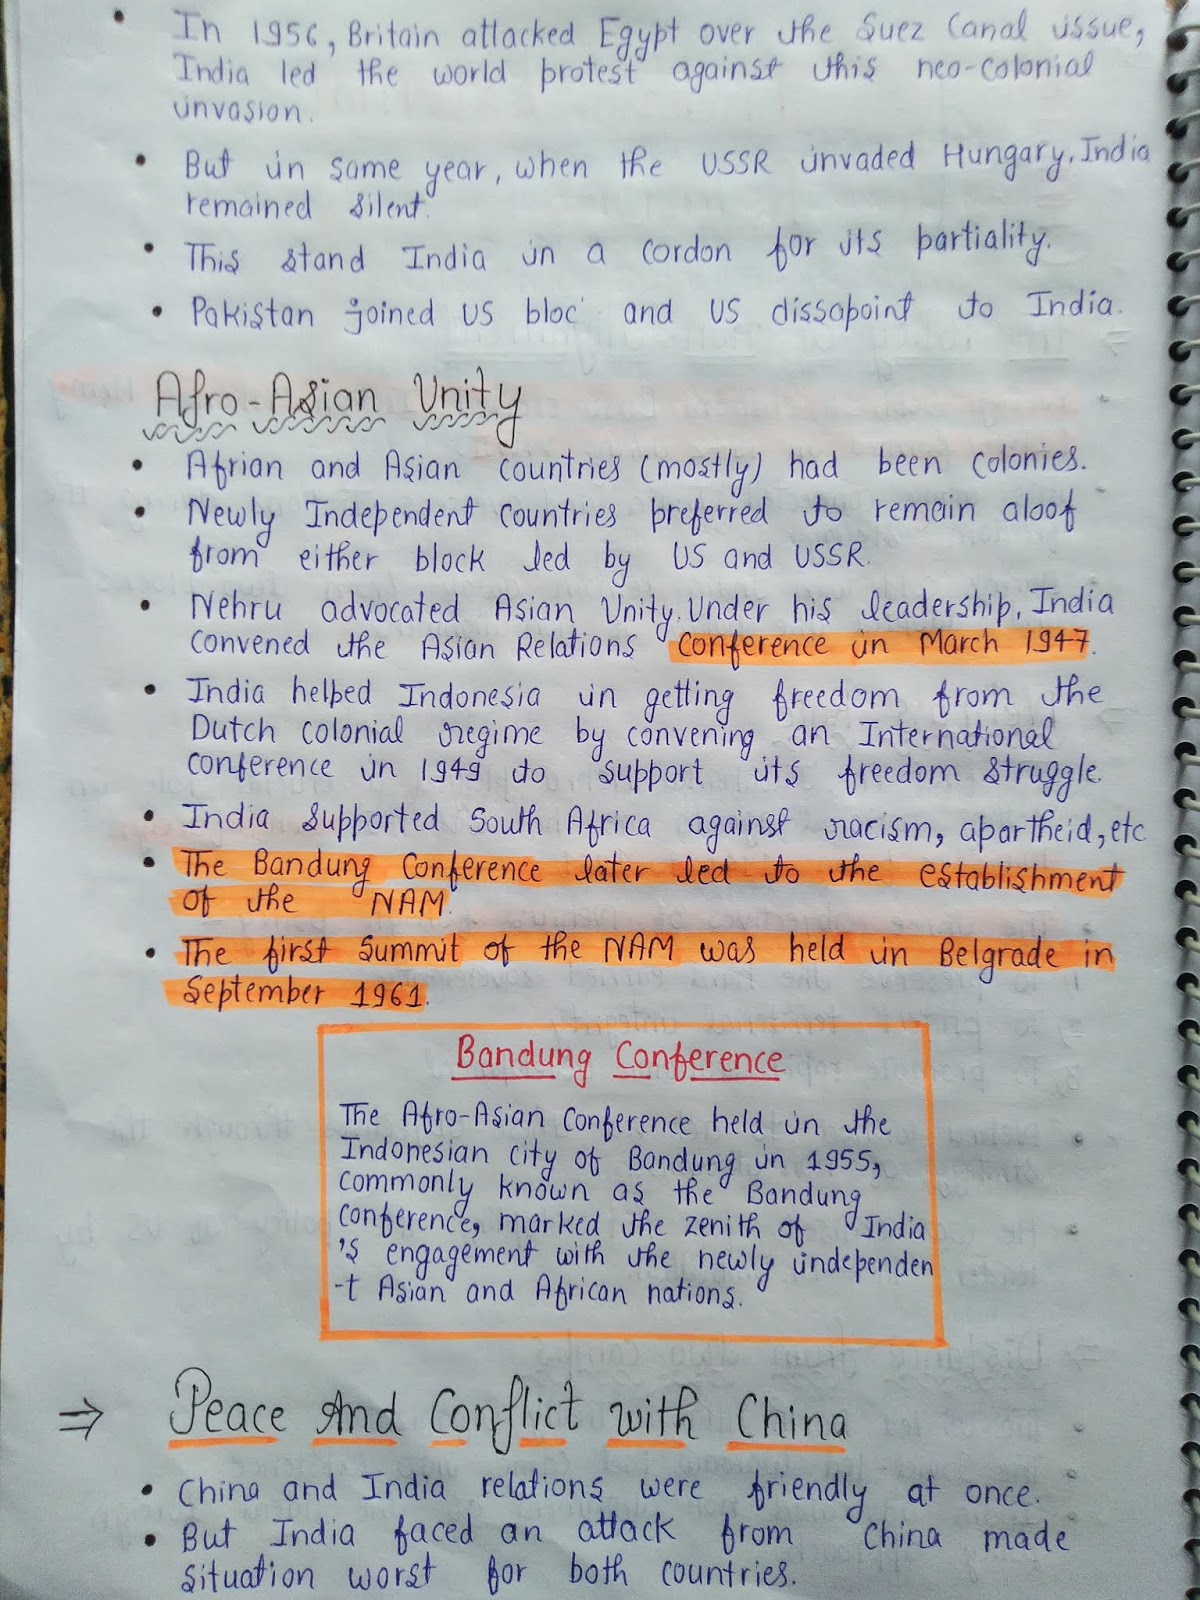 • In 1956, Britain attacked Egypt over the Suez Canal issue,
India led the world protest against this neo-colonial
invasion.
• But in same year, when the USSR invaded Hungary, India
remained silent.
• This stand India in a cordon for its partiality.
• Pakistan joined US bloc and US dissapoint to India.
Afro-Asian Unity
• Afrian and Asian countries (mostly) had been colonies.
• Newly Independent countries preferred to remain aloof
from either block led by US and USSR.
• Nehru advocated Asian Unity. Under his leadership, India
convened the Asian Relations Conference in March 1947.
• India helped Indonesia in getting freedom from the
Dutch colonial regime by convening an International
conference in 1949 to support its freedom struggle.
• India supported South Africa against racism, apartheid, etc
• The Bandung Conference later led to the establishment
of the NAM.
• The first summit of the NAM was held in Belgrade in
September 1961.
Bandung Conference
The Afro-Asian Conference held in the
Indonesian city of Bandung in 1955,
commonly known as the Bandung
conference, marked the zenith of India
's engagement with the newly independen
-t Asian and African nations.
⇒ Peace And Conflict with China
• China and India relations were friendly at once.
• But India faced an attack from China made
situation worst for both countries.